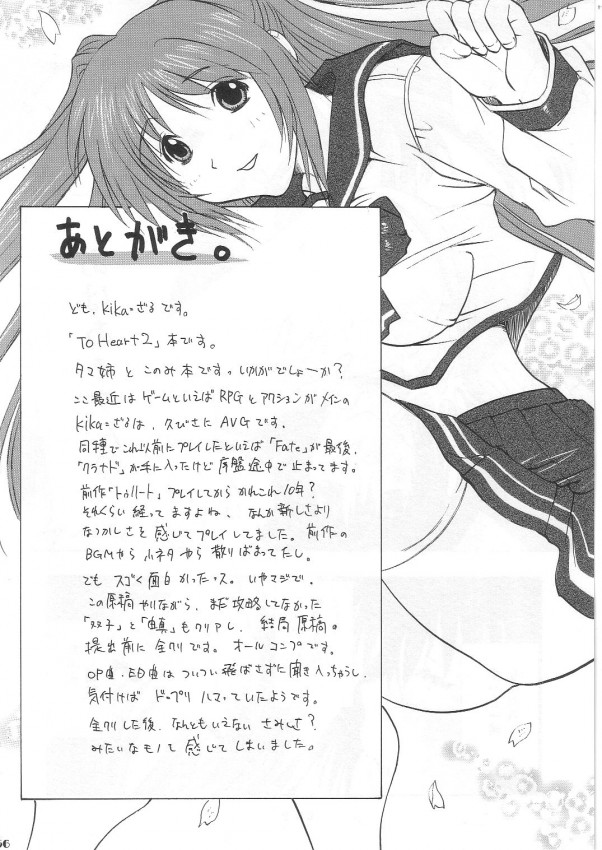 あとがき。
ども、kika=ざるです。
「To Heart2」本です。
タマ姉とこのみ本です。いかがでしょーか?
ここ最近はゲームといえばRPGとアクションがメインの
kika=ざるは、久びさにAVGです。
同種でこれ以前にプレイしたといえば「Fate」が最後、
「クラナド」が手に入ったけど序盤途中で止まってます。
前作「トゥハート」プレイしてからかれこれ10年?
それくらい経ってますよね、なんか新しさより
なつかしさを感じてプレイしてました。前作の
BGMやら小ネタやら散りばまってたし。
でもスゴく面白かったッス。いやマジで。
この原稿やりながら、まだ攻略してなかった
「双子」と「由真」もクリアし、結局原稿。
提出前に全クリです。オールコンプです。
OP曲・ED曲はついつい飛ばさずに聞き入っちゃうし、
気付けばドップリハマっていたようです。
全クリした後、なんともいえないさみしさ?
みたいなモノを感じてしまいました。
56